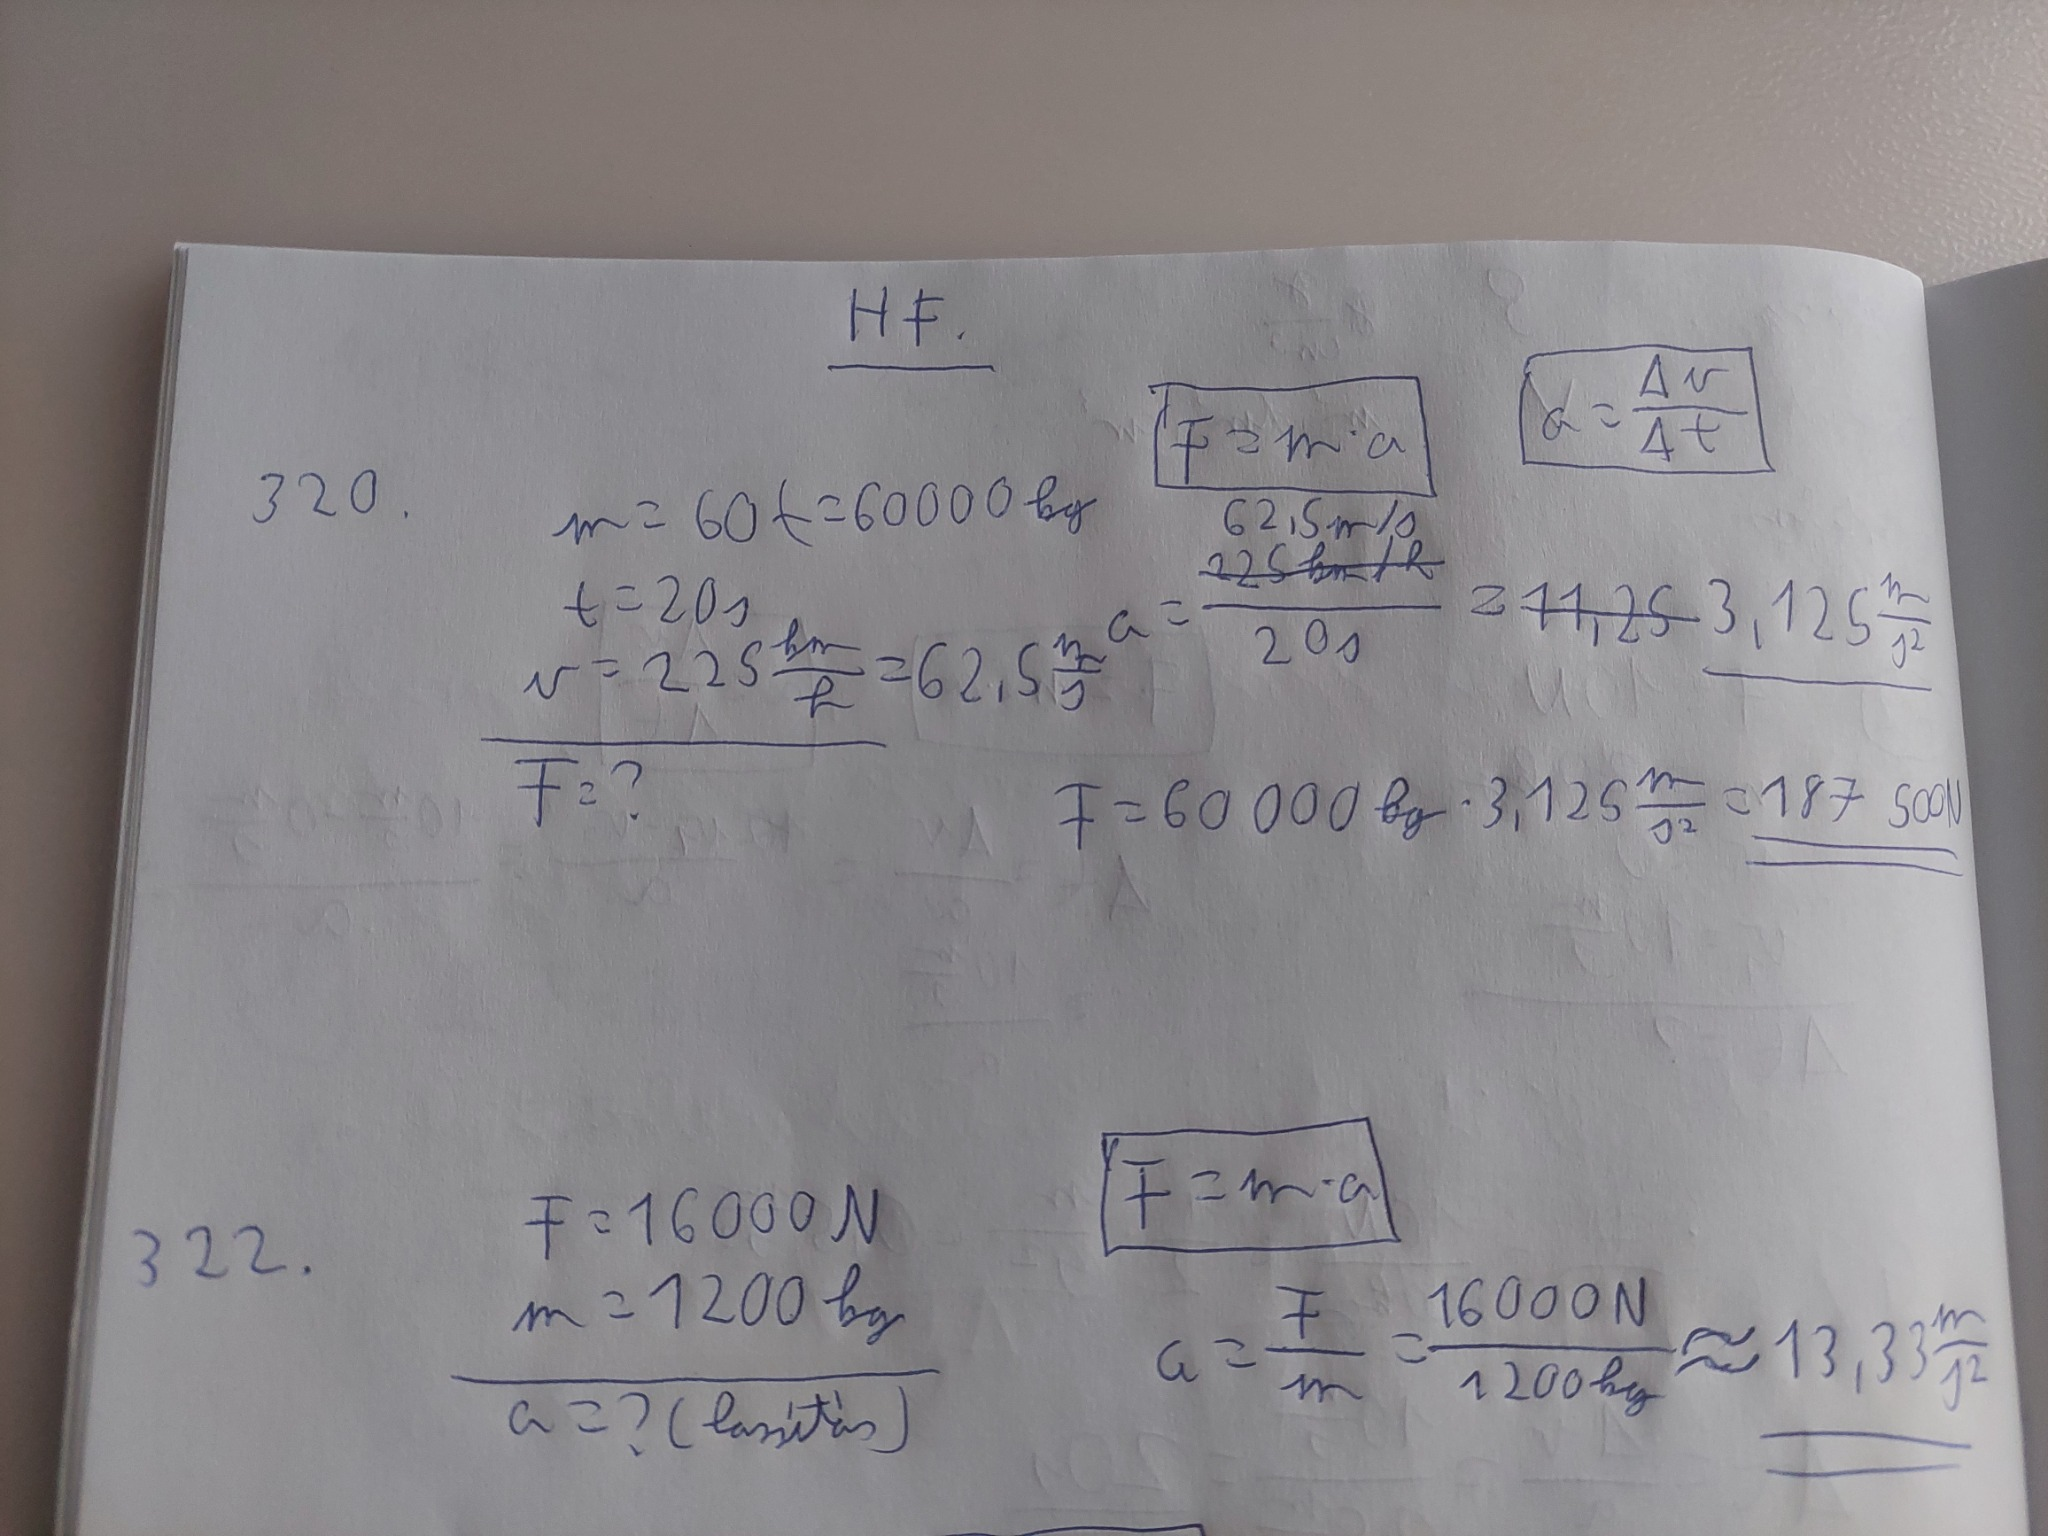 HF.
320.
m = 60 t = 60000 kg
t = 20s
v = 225 km/h = 62,5 m/s
F = ?
F = m · a
a = Δv/Δt
62,5 m/s
a = 225 km/h / 20s = 11,25 3,125 m/s²
F = 60 000 kg · 3,125 m/s² = 187 500N
322.
F = 16000 N
m = 1200 kg
a = ? (lassítás)
F = m · a
a = F/m = 16000N/1200kg ≈ 13,33 m/s²